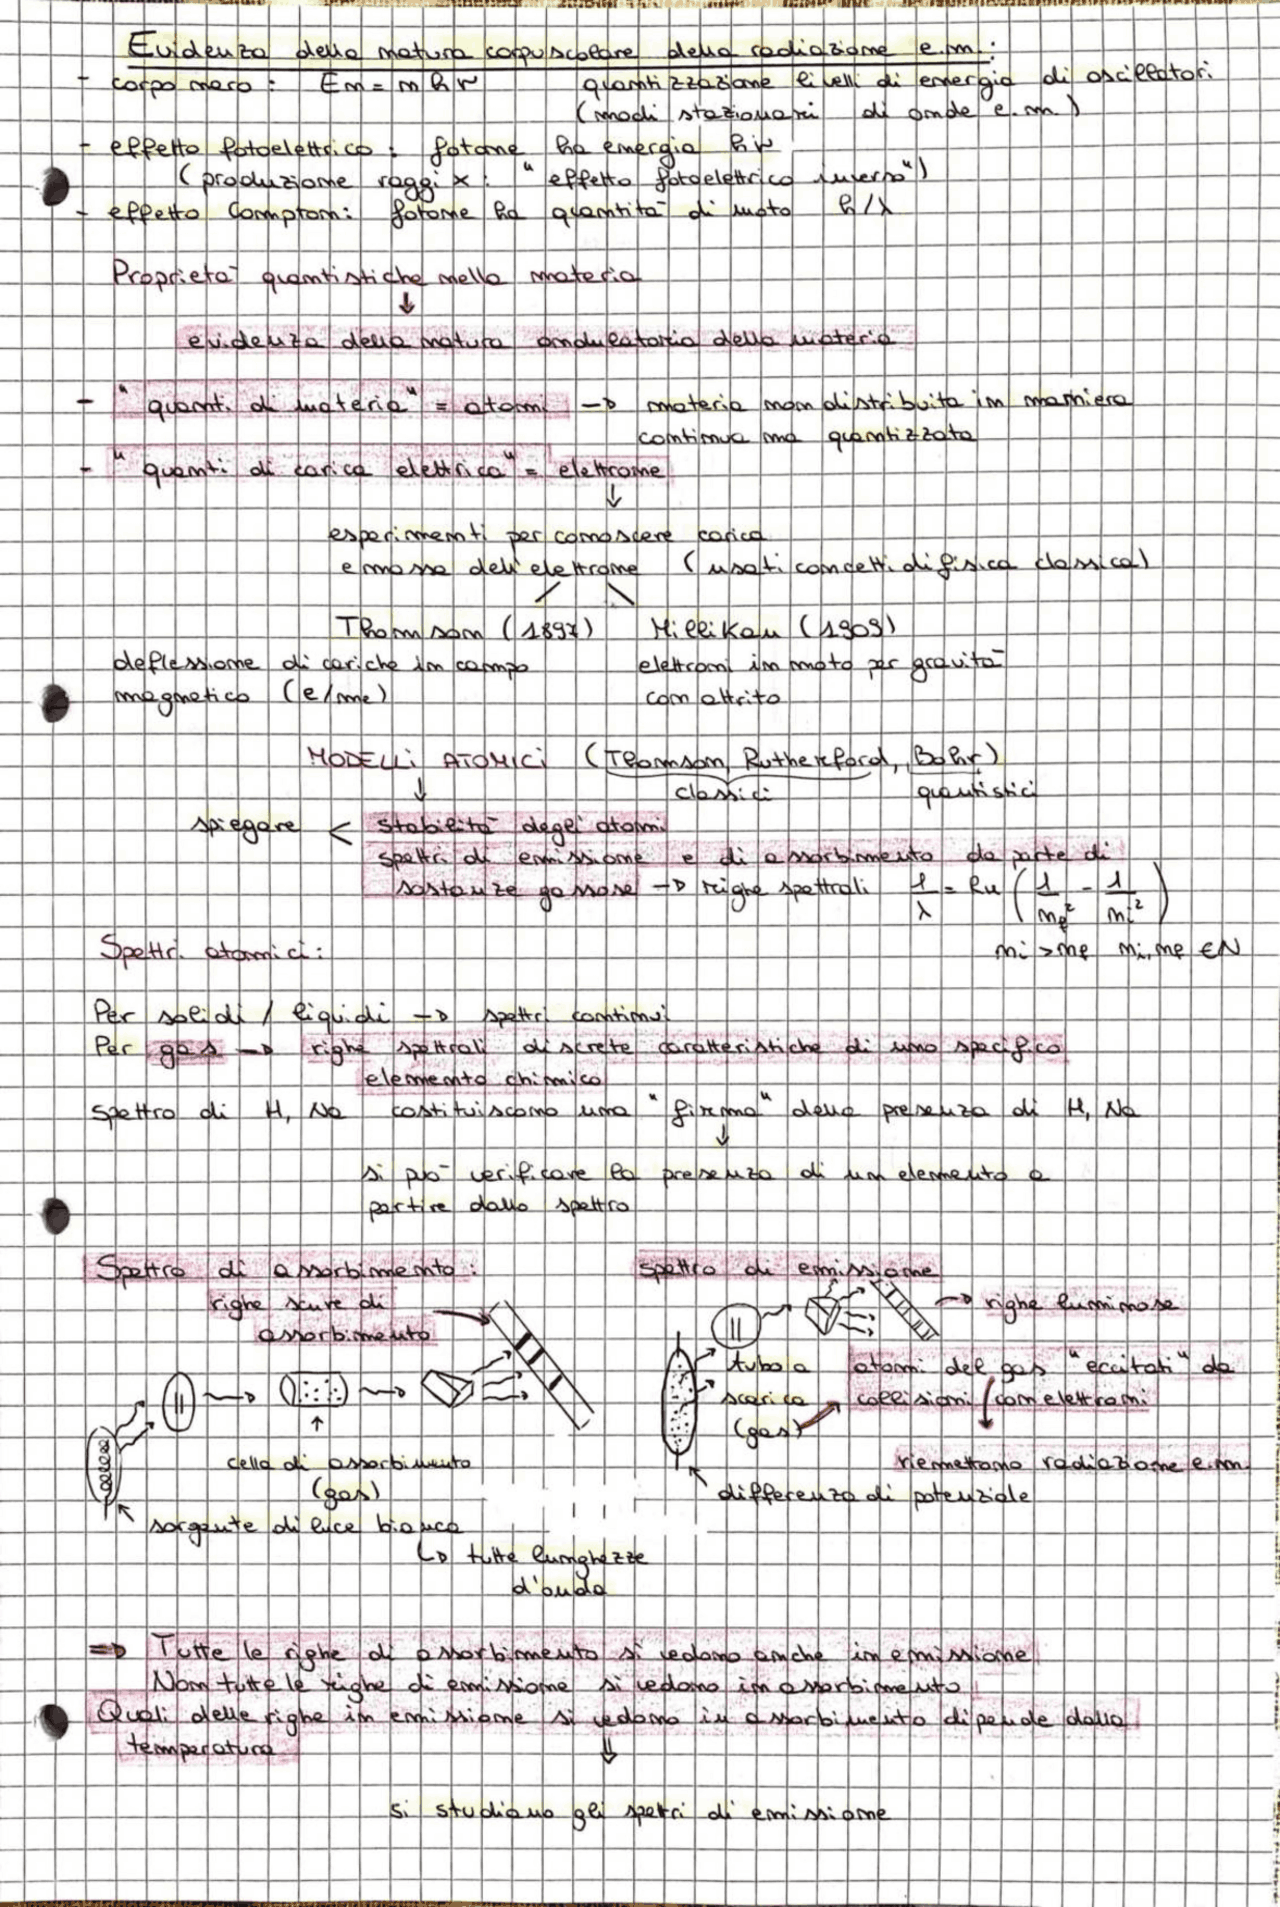 Evidenza della natura corpuscolare della radiazione e.m.:
- corpo nero: En = nhν quantizzazione livelli di energia di oscillatori
(modi stazionari di onde e.m.)
- effetto fotoelettrico: fotone ha energia hν
(produzione raggi x: "effetto fotoelettrico inverso")
- effetto Compton: fotone ha quantità di moto h/λ
Proprietà quantistiche nella materia
↓
evidenza della natura ondulatoria della materia
- "quanti di materia" = atomi → materia non distribuita in maniera
continua ma quantizzata
- "quanti di carica elettrica" = elettrone
↓
esperimenti per conoscere carica
e massa dell'elettrone (usati concetti di fisica classica)
Thomson (1897) Millikan (1909)
deflessione di cariche in campo elettroni in moto per gravità
magnetico (e/me) con attrito
MODELLI ATOMICI (Thomson, Rutherford, Bohr)
↓ classici quantistici
spiegare < stabilità degli atomi
spettri di emissione e di assorbimento da parte di
sostanze gassose → righe spettrali 1/λ = RH (1/nf² - 1/ni²)
Spettri atomici: ni > nf ni, nf ∈ N
Per solidi / liquidi → spettri continui
Per gas → righe spettrali discrete caratteristiche di uno specifico
elemento chimico
spettro di H, Na costituiscono una "firma" della presenza di H, Na
↓
si può verificare la presenza di un elemento a
partire dallo spettro
Spettro di assorbimento: spettro di emissione
righe scure di
assorbimento
→ righe luminose
tubo a
scarica
(gas)
atomi del gas "eccitati" da
collisioni con elettroni
riemettono radiazione e.m.
differenza di potenziale
cella di assorbimento
(gas)
sorgente di luce bianca
↳ tutte lunghezze
d'onda
⇒ Tutte le righe di assorbimento si vedono anche in emissione
Non tutte le righe di emissione si vedono in assorbimento
Quali delle righe in emissione si vedono in assorbimento dipende dalla
temperatura
⇓
si studiano gli spettri di emissione